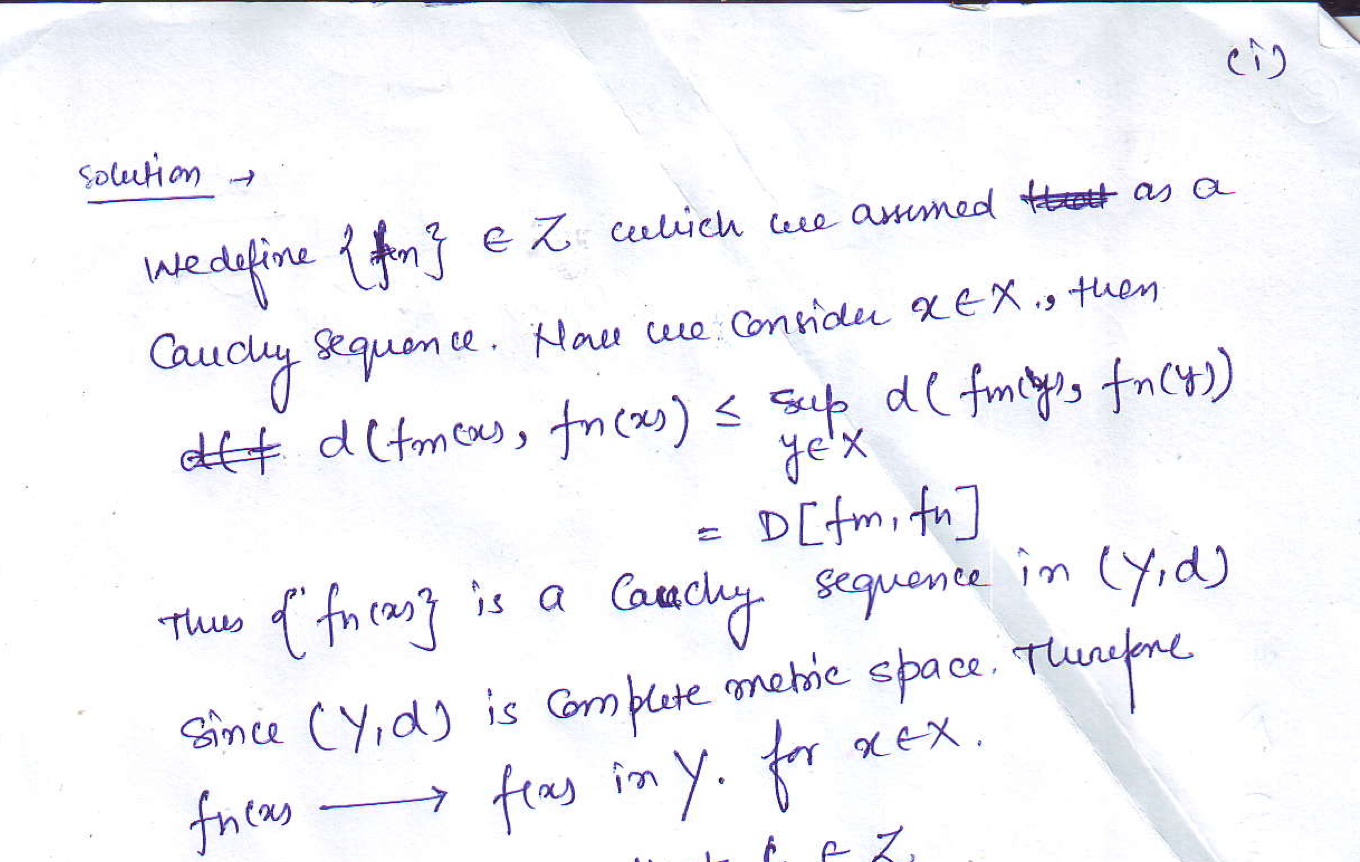 (i)
Solution →
We define {fn} ∈ Z which we assumed as a
Cauchy sequence. Now we consider x ∈ X., then
d(fm(x), fn(x)) ≤ sup d(fm(y), fn(y))
y∈X
= D[fm, fn]
Thus {fn(x)} is a Cauchy sequence in (Y,d)
Since (Y,d) is Complete metric space. Therefore
fn(x) ⟶ f(x) in Y. for x∈X.
∈ Z.